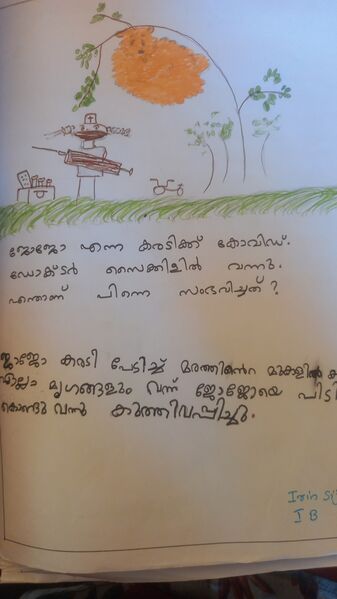 ജോജോ എന്ന കരടിക്ക് കോവിഡ്.
ഡോക്ടർ സൈക്കിളിൽ വന്നു.
എന്താണ് പിന്നെ സംഭവിച്ചത്?
ജോജോ കരടി പേടിച്ച് മരത്തിൻെറ മുകളിൽ
എല്ലാ മൃഗങ്ങളും വന്ന് ജോജോയെ പിടി
കൊണ്ടുവന്ന് കുത്തിവപ്പിച്ചു.
Irin
I B